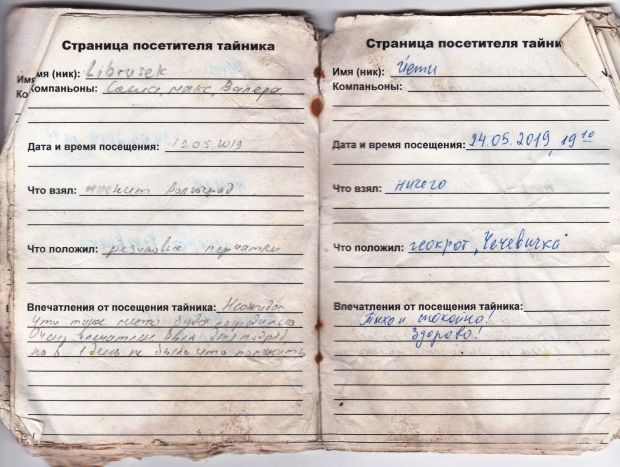 Страница посетителя тайника
Имя (ник): Librusek
Компаньоны: Саша, макс, Валера
Дата и время посещения: 19.05.2019
Что взял: магнит Волгоград
Что положил: резиновые перчатки
Впечатления от посещения тайника:
что такое место
Очень
1 день не было что положить
Страница посетителя тайни
Имя (ник): Йети
Компаньоны:
Дата и время посещения: 24.05.2019, 19 10
Что взял: ничего
Что положил: геокрот „Чечевичка"
Впечатления от посещения тайника:
Тихо и спокойно!
Здорово!